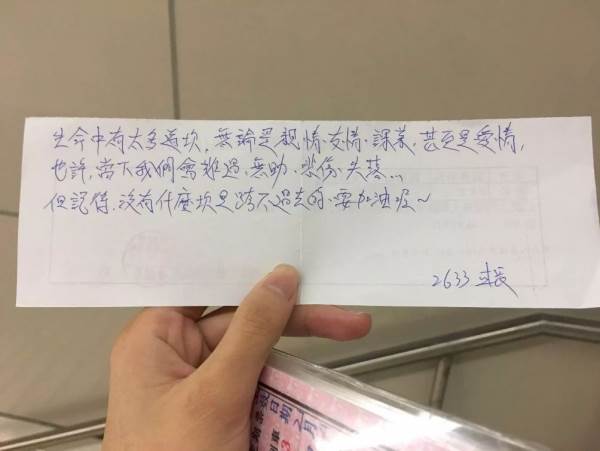 生命中有太多道坎，無論是親情、友情、課業，甚至是愛情，
也許，當下我們會難過、無助、悲傷、失落...
但記得，沒有什麼坎是跨不過去的，要加油喔～
2633 車長
日期2月
車3